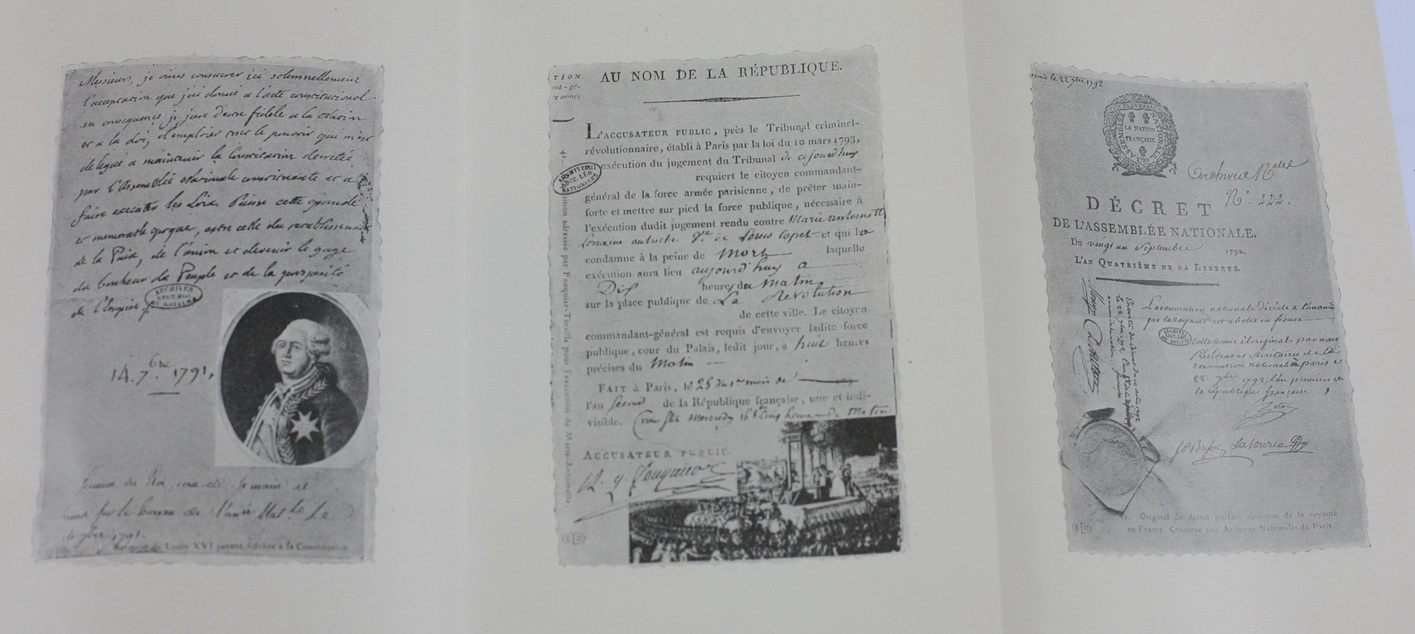 Messieurs, je viens consacrer ici solemnellement
l'acceptation que j'ai donné a l'acte constitutionel
en consequence je jure d'etre fidele a la nation
et a la loi, d'emploier tout le pouvoir qui m'est
delegué a maintenir la Constitution decretée
par l'Assemblée Nationale constituante et a
faire executer les Loix. Puisse cette grande
et memorable epoque, etre celle du retablissement
de la Paix, de l'union et devenir le gage
du bonheur du Peuple et de la prosperité
de l'Empire
14. 7bre 1791.
Serment du Roi,
sur le bureau de
7bre 1791.
Serment de Louis XVI portant fidélité à la Constitution
TION
AU NOM DE LA RÉPUBLIQUE.
L'ACCUSATEUR PUBLIC, près le Tribunal criminel-
révolutionnaire, établi à Paris par la loi du 10 mars 1793,
exécution du jugement du Tribunal de ce jourd'huy
requiert le citoyen commandant-
général de la force armée parisienne, de prêter main-
forte et mettre sur pied la force publique, nécessaire à
l'exécution dudit jugement rendu contre Marie antoinette
Lorraine autriche Ve de Louis Capet et qui la
condamne à la peine de Mort laquelle
exécution aura lieu aujourd'huy a
Dix heures du Matin
sur la place publique de La Revolution
de cette ville. Le citoyen
commandant-général est requis d'envoyer ladite force
publique, cour du Palais, ledit jour, à huit heures
précises du Matin
FAIT à Paris, le 25 du 1er mois de
l'an Second de la République française, une et indi-
visible.
ACCUSATEUR PUBLIC.
A. q. Fouquier
ARCHIVES
NATIONALES
le 22 7bre 1792
ASSEMBLÉE NATIONALE
LA NATION
FRANÇAISE
Archives Nales
N°. 222.
DÉCRET
DE L'ASSEMBLÉE NATIONALE.
Du vingt un Septembre 1792.
L'AN QUATRIÈME DE LA LIBERTÉ.
La convention nationale décrète a l'unanimité
que la royauté est abolie en france
Collationné à l'original par nous
Présidens et Secrétaires de la
convention nationale a paris le
22 7bre 1792 l'an premier de
la république française
Lasource
Original du décret portant abolition de la royauté
en France. Conservé aux Archives Nationales de Paris